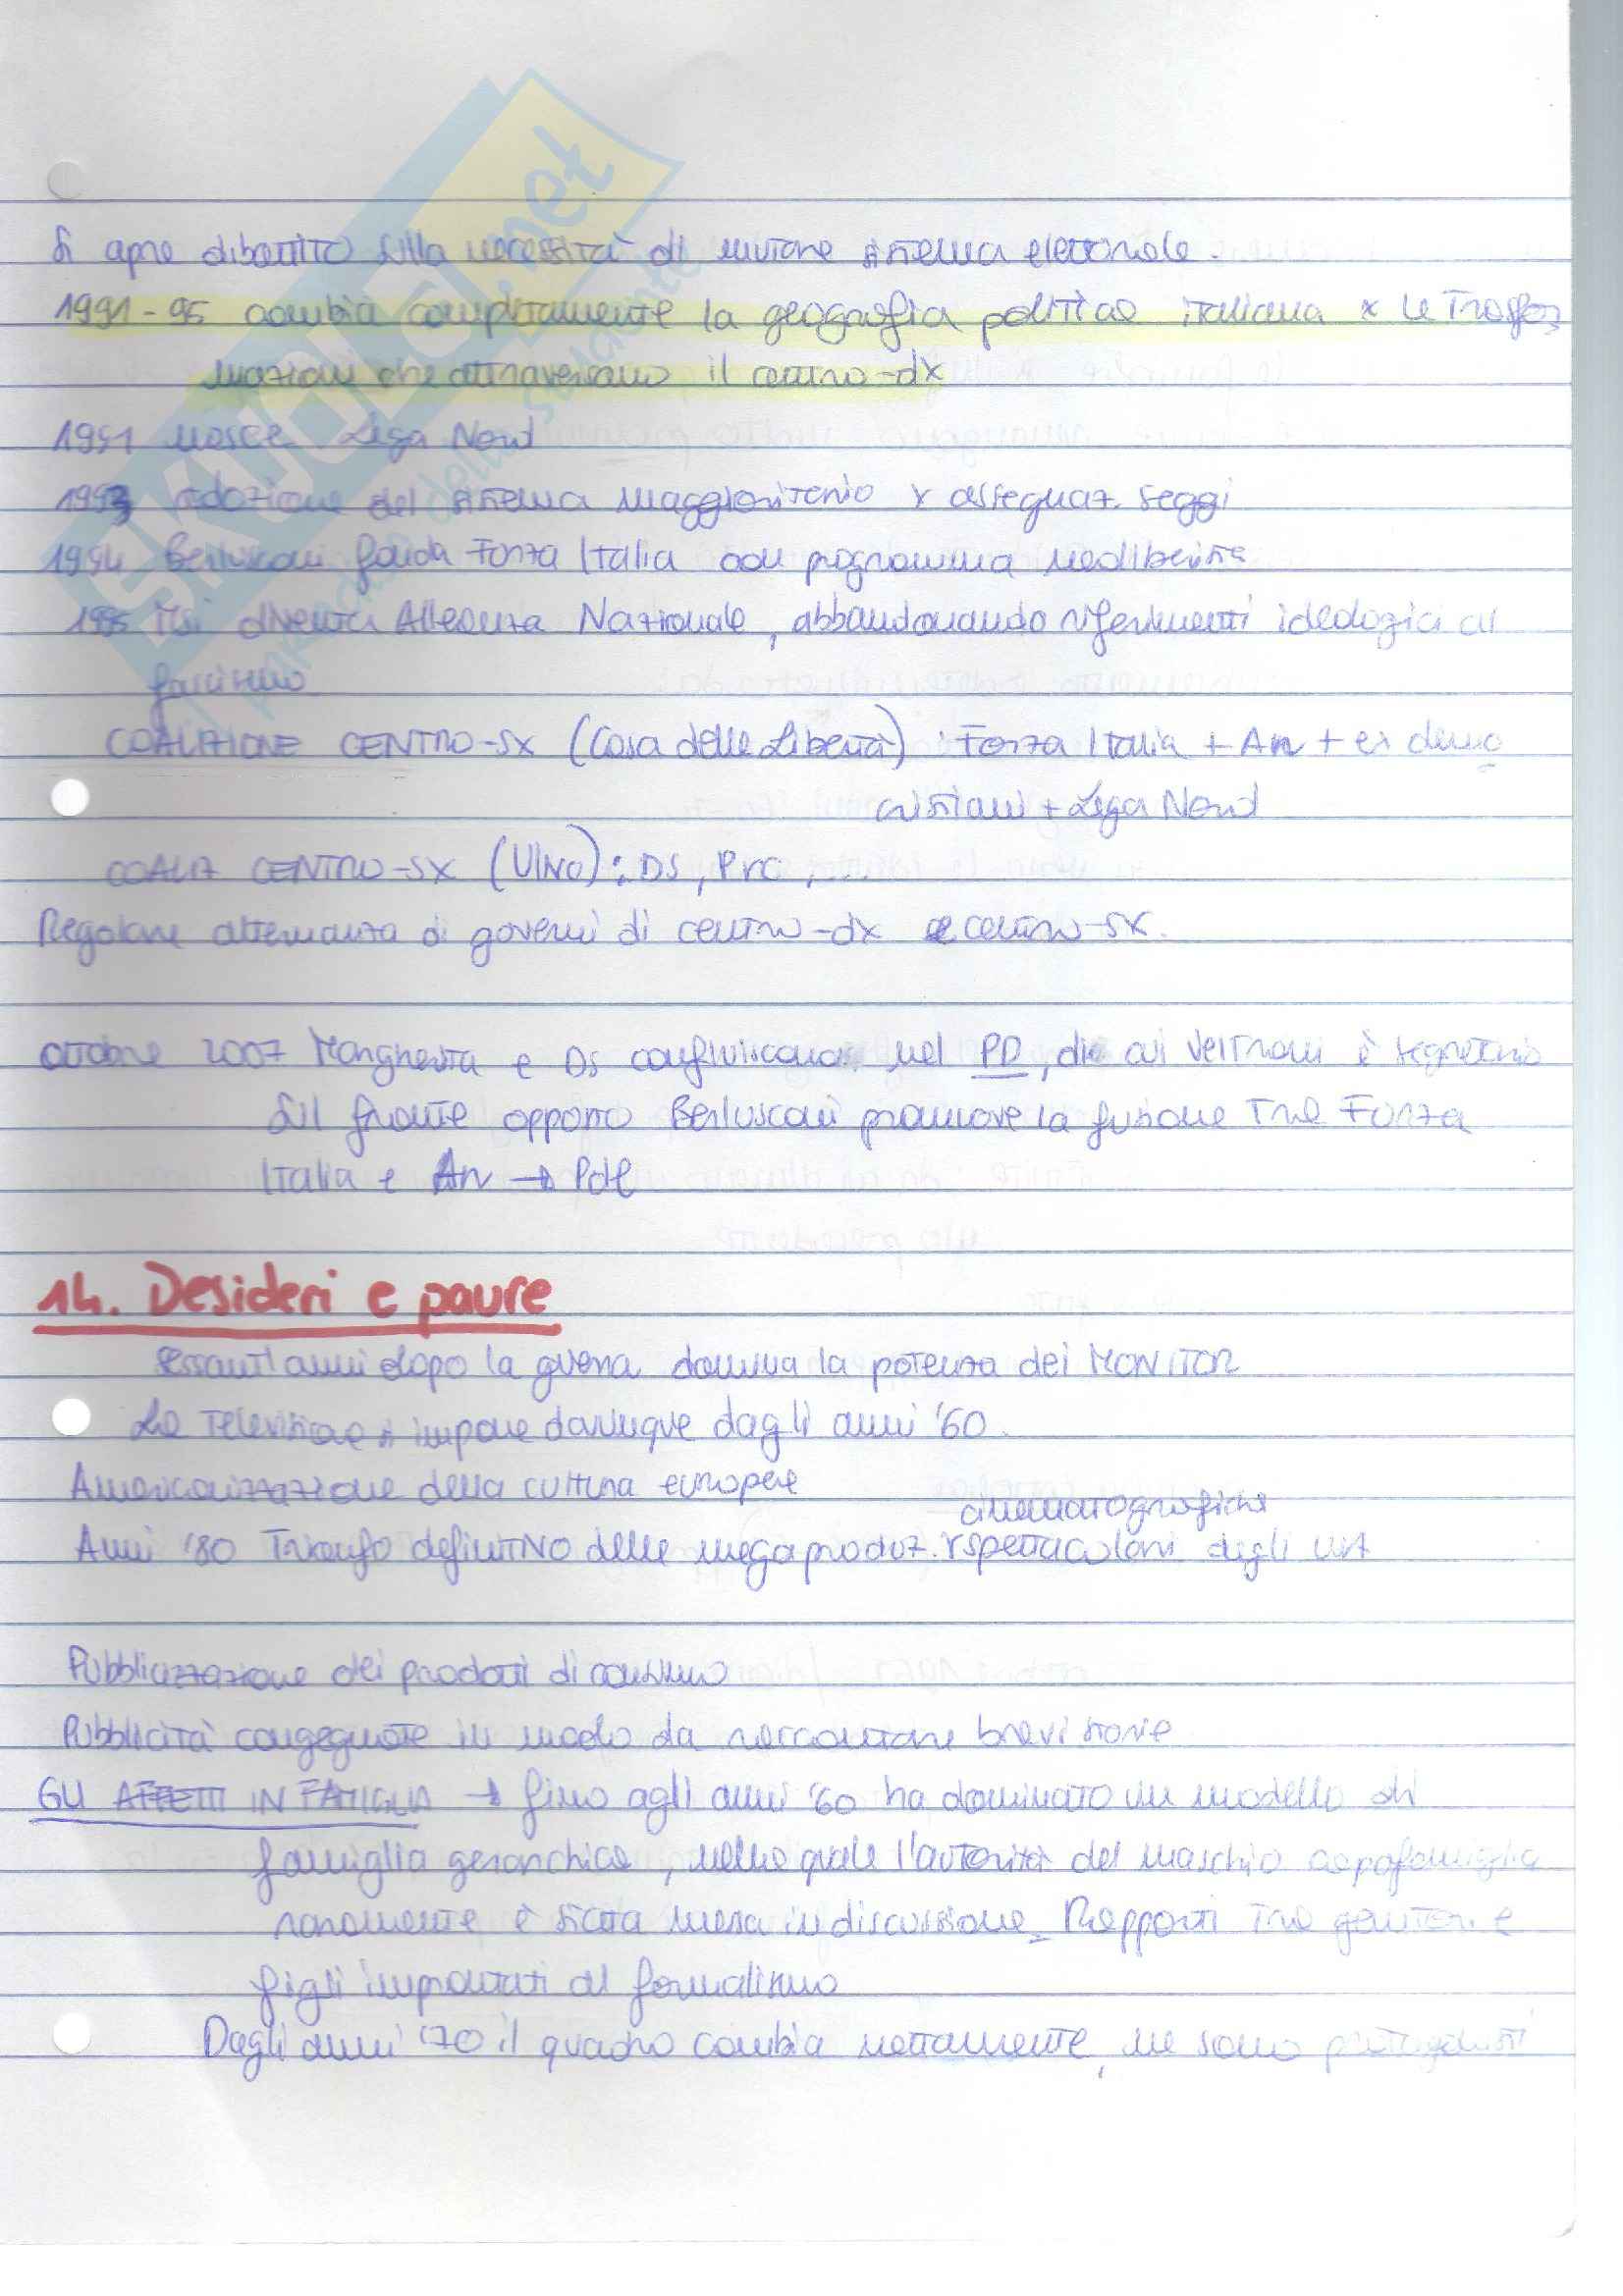 Si apre dibattito sulla necessità di mutare sistema elettorale.
1991-95 cambia completamente la geografia politica italiana x le trasfor
mazioni che attraversano il centro-dx
1991 nasce Lega Nord
1993 adozione del sistema maggioritario x assegnaz. seggi
1994 Berlusconi fonda Forza Italia con programma neoliberista
1995 Msi diventa Alleanza Nazionale, abbandonando riferimenti ideologici al
fascismo
COALIZIONE CENTRO-SX (Casa delle Libertà): Forza Italia + An + ex demo
cristiani + Lega Nord
COALIZ CENTRO-SX (Ulivo): DS, Prc, ...
Regolare alternanza di governi di centro-dx e centro-sx.
Ottobre 2007 Margherita e Ds confluiscono nel PD, di cui Veltroni è segretario
Sul fronte opposto Berlusconi promuove la fusione tra Forza
Italia e An → Pdl
14. Desideri e paure
Sessant'anni dopo la guerra domina la potenza dei MONITOR
La televisione si impone dovunque dagli anni '60
Americanizzazione della cultura europea
cinematografiche
Anni '80 trionfo definitivo delle megaproduz. spettacolari degli USA
Pubblicizzazione dei prodotti di consumo
Pubblicità congegnate in modo da raccontare brevi storie
GLI AFFETTI IN FAMIGLIA → fino agli anni '60 ha dominato un modello di
famiglia gerarchica, nella quale l'autorità del maschio capofamiglia
raramente è stata messa in discussione. Rapporti tra genitori e
figli improntati al formalismo
Dagli anni '70 il quadro cambia nettamente, ne sono protagonisti
SKUOLA.net